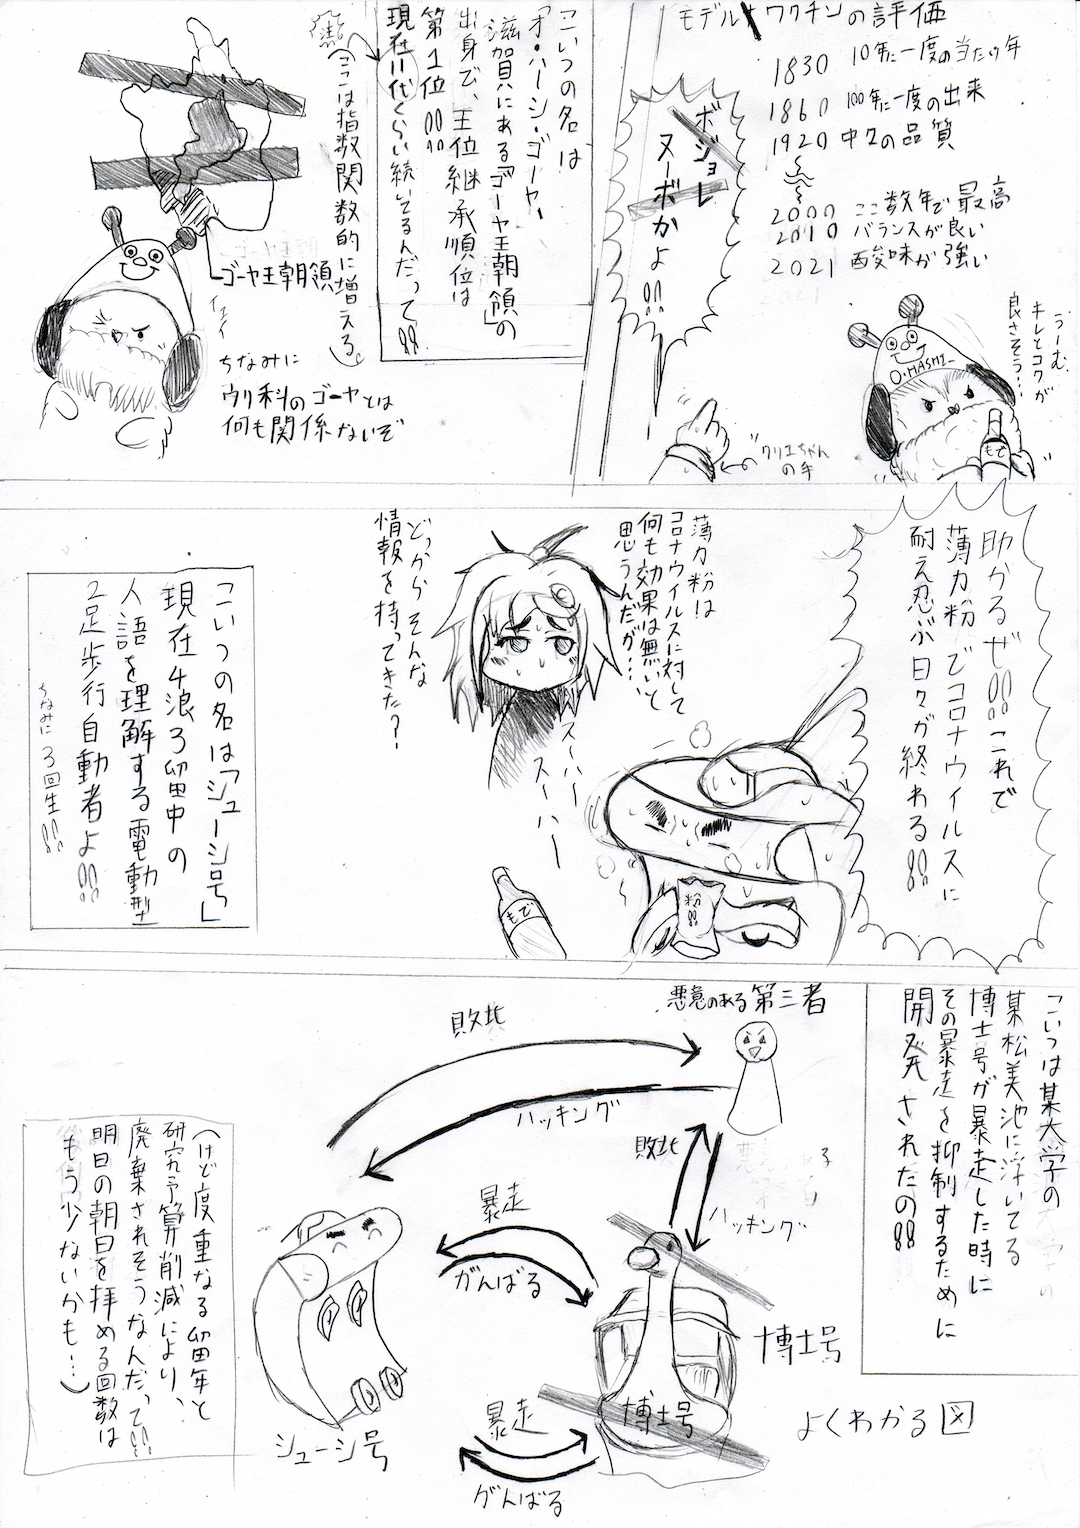 モデルナワクチンの評価
1830 10年に一度の当たり年
1860 100年に一度の出来
1920 中々の品質
2000 ここ数年で最高
2010 バランスが良い
2021 酸味が強い
ボジョレ
ヌーボかよ!!
うーむ、
キレとコクが
良さそう…
O・HASHI
もで
クリエちゃん
の手
こいつの名は
「オ・ハーシ・ゴーヤー」
滋賀にある「ゴーヤ王朝領」の
出身で、王位継承順位は
第1位!!
現在11代くらい続いてるんだって!!
(ここは指数関数的に増える)
ゴーヤ王朝領
イェイ
ちなみに
ウリ科のゴーヤとは
何も関係ないぞ
助かるぜ!!これで
薄力粉でコロナウイルスに
耐え忍ぶ日々が終わる!!
薄力粉は
コロナウイルスに対して
何も効果は無いと
思うんだが…
どっからそんな
情報を持ってきた?
スーハー
スーハー
粉!!
もで
こいつの名は「シューシ号」
現在4浪3留中の
人語を理解する電動型
2足歩行自動者よ!!
ちなみに3回生!!
こいつは某大学の
某松美池に浮いてる
博士号が暴走した時に
その暴走を抑制するために
開発されたの!!
悪意のある第三者
敗北
ハッキング
敗北
ハッキング
暴走
がんばる
博士号
博士号
シューシ号
暴走
がんばる
よくわかる図
(けど度重なる留年と
研究予算削減により、
廃棄されそうなんだって!!
明日の朝日を拝める回数は
もう少ないかも…)